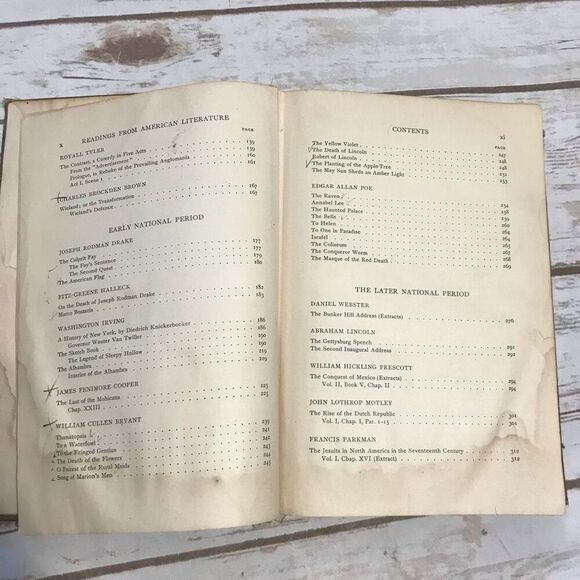 x READINGS FROM AMERICAN LITERATURE
PAGE
ROYALL TYLER 139
The Contrast, a Comedy in Five Acts 139
From the "Advertisement" 160
Prologue, in Rebuke of the Prevailing Anglomania 161
Act I, Scene 1
CHARLES BROCKDEN BROWN 167
Wieland; or the Transformation 167
Wieland's Defence
EARLY NATIONAL PERIOD
JOSEPH RODMAN DRAKE 177
The Culprit Fay 177
The Fay's Sentence 179
The Second Quest 180
The American Flag
FITZ-GREENE HALLECK 182
On the Death of Joseph Rodman Drake 183
Marco Bozzaris
WASHINGTON IRVING 186
A History of New York, by Diedrich Knickerbocker 186
Governor Wouter Van Twiller 190
The Sketch Book 190
The Legend of Sleepy Hollow 209
The Alhambra 209
Interior of the Alhambra
JAMES FENIMORE COOPER 225
The Last of the Mohicans 225
Chap. XXIII
WILLIAM CULLEN BRYANT 239
Thanatopsis 241
To a Waterfowl 242
To the Fringed Gentian 242
The Death of the Flowers 243
O Fairest of the Rural Maids 245
Song of Marion's Men
CONTENTS xi
PAGE
The Yellow Violet
The Death of Lincoln 247
Robert of Lincoln 248
The Planting of the Apple-Tree 248
The May Sun Sheds an Amber Light 251
253
EDGAR ALLAN POE
The Raven
Annabel Lee 254
The Haunted Palace 258
The Bells 259
To Helen 260
To One in Paradise 264
Israfel 264
The Coliseum 265
The Conqueror Worm 267
The Masque of the Red Death 268
269
THE LATER NATIONAL PERIOD
DANIEL WEBSTER
The Bunker Hill Address (Extracts) 276
ABRAHAM LINCOLN
The Gettysburg Speech 291
The Second Inaugural Address 292
WILLIAM HICKLING PRESCOTT
The Conquest of Mexico (Extracts) 294
Vol. II, Book V, Chap. II 294
JOHN LOTHROP MOTLEY
The Rise of the Dutch Republic 301
Vol. I, Chap. I, Par. 1-15 301
FRANCIS PARKMAN
The Jesuits in North America in the Seventeenth Century 312
Vol. I, Chap. XVI (Extract) 312